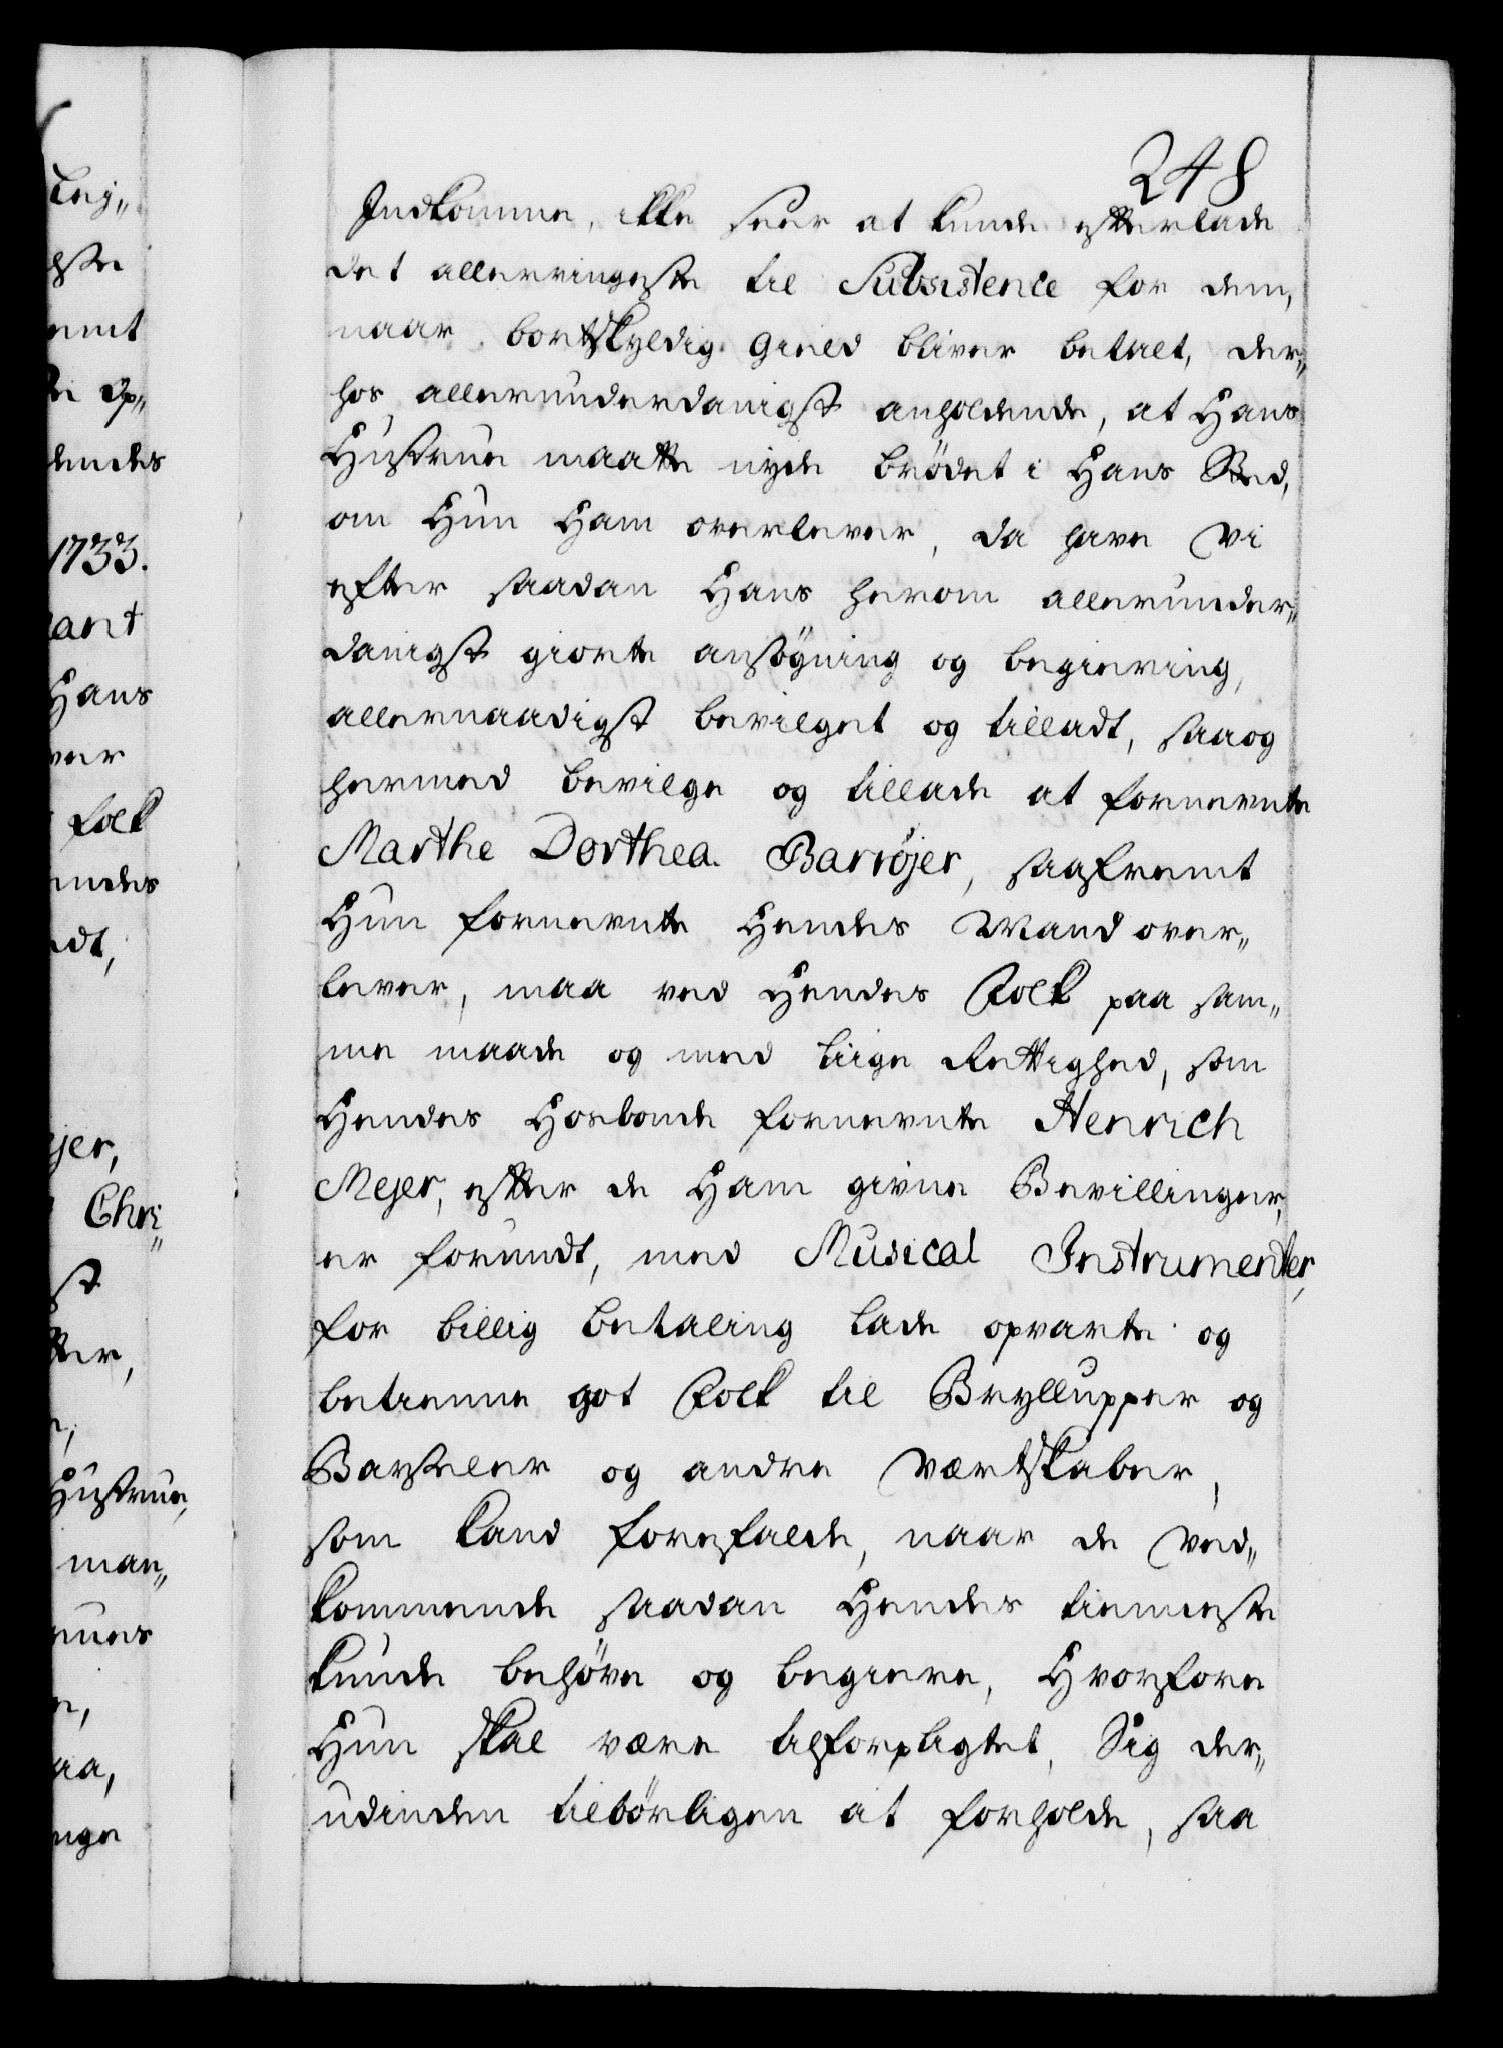 248
Indkomme, ikke seer at kunde efterlade
det allerringeste til Subsistence for dem,
naar bortskyldig Gield bliver betalt, der„
hos allerunderdanigst anholdende, at Hans
Hustrue maatte nyde brödet i Hans Sted,
om Hun Ham overlever, da have Vi
efter saadan Hans herom allerunder„
danigst giorte ansögning og begiering,
allernaadigst bevilget og tilladt, saa og
hermed bevilge og tillade at fornevnte
Marthe Dorthea Barrøjer, saafremt
Hun fornevnte Hendes Mand over„
lever, maa ved Hendes Folk paa sam„
me maade og med liige Rettighed, som
Hendes Hosbonde fornevnte Henrich
Mejer, efter de Ham givne Bevillinger,
er forundt, med Musical Instrumenter,
for billig betaling lade opvarte og
betienne got Folk til Bryllupper og
Barseler og andre Værtskaber,
som kand forefalde, naar de Ved„
kommende saadan Hendes tienneste
kunde behöve og begiere, Hvorfore
Hun skal være tilforpligtet, Sig der„
udinden tilbörligen at forholde, saa
ley„
emt
Op„
1733.
Hans
folk
adt,
jer,
Chri„
Hustrue,
man„